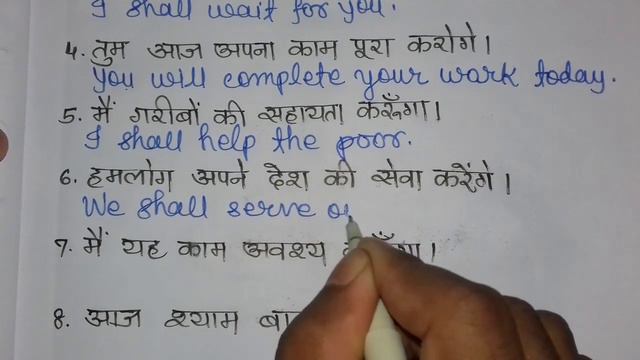 I shall wait for you.
4. तुम आज अपना काम पूरा करोगे।
You will complete your work today.
5. मैं गरीबों की सहायता करूँगा।
I shall help the poor.
6. हमलोग अपने देश की सेवा करेंगे।
We shall serve
7. मैं यह काम अवश्य
8. आज श्याम